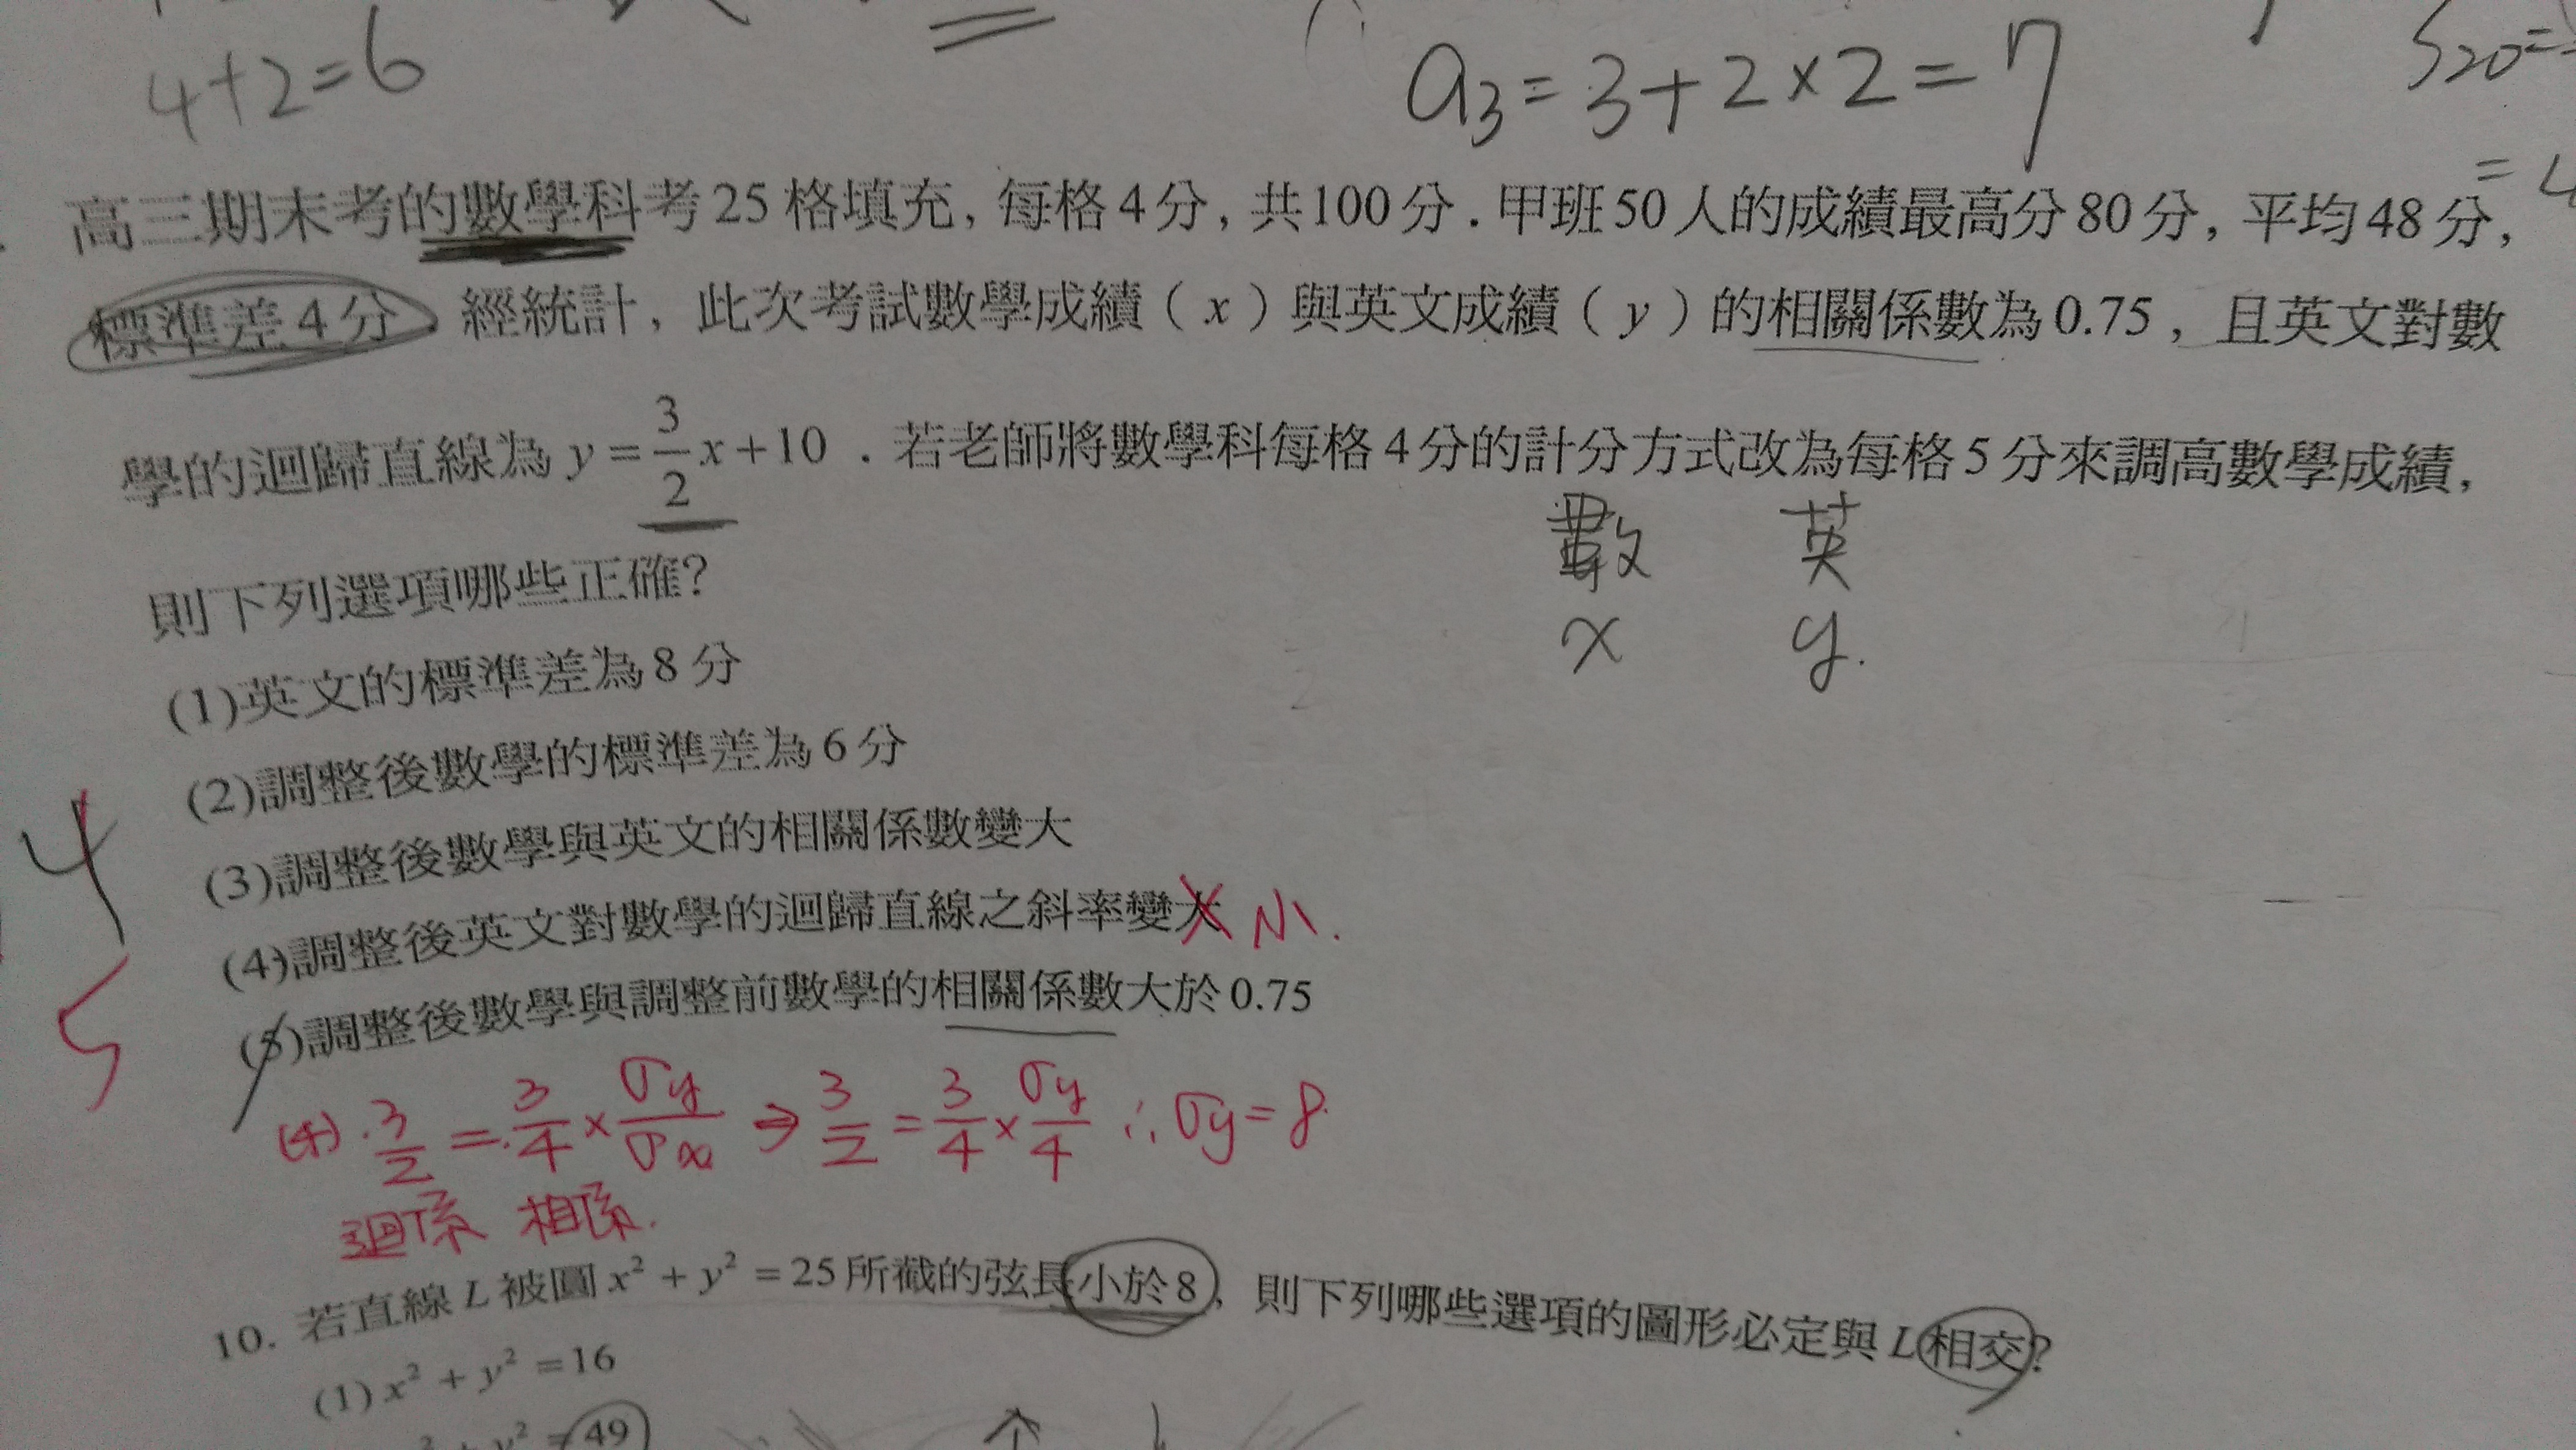 4+2=6
a₃=3+2×2=7
S₂₀=
= 4
高三期末考的數學科考25格填充，每格4分，共100分．甲班50人的成績最高分80分，平均48分，
標準差4分．經統計，此次考試數學成績（x）與英文成績（y）的相關係數為0.75，且英文對數
學的迴歸直線為 y = 3/2 x + 10．若老師將數學科每格4分的計分方式改為每格5分來調高數學成績，
數 英
則下列選項哪些正確?
x y.
(1)英文的標準差為8分
(2)調整後數學的標準差為6分
(3)調整後數學與英文的相關係數變大
4
(4)調整後英文對數學的迴歸直線之斜率變大 小.
5
(5)調整後數學與調整前數學的相關係數大於0.75
(4). 3/2 = 3/4 × σy/σx ⇒ 3/2 = 3/4 × σy/4 ∴ σy = 8
迴係 相係.
10. 若直線L被圓 x² + y² = 25 所截的弦長小於8，則下列哪些選項的圖形必定與L相交?
(1) x² + y² = 16
² + y² = 49